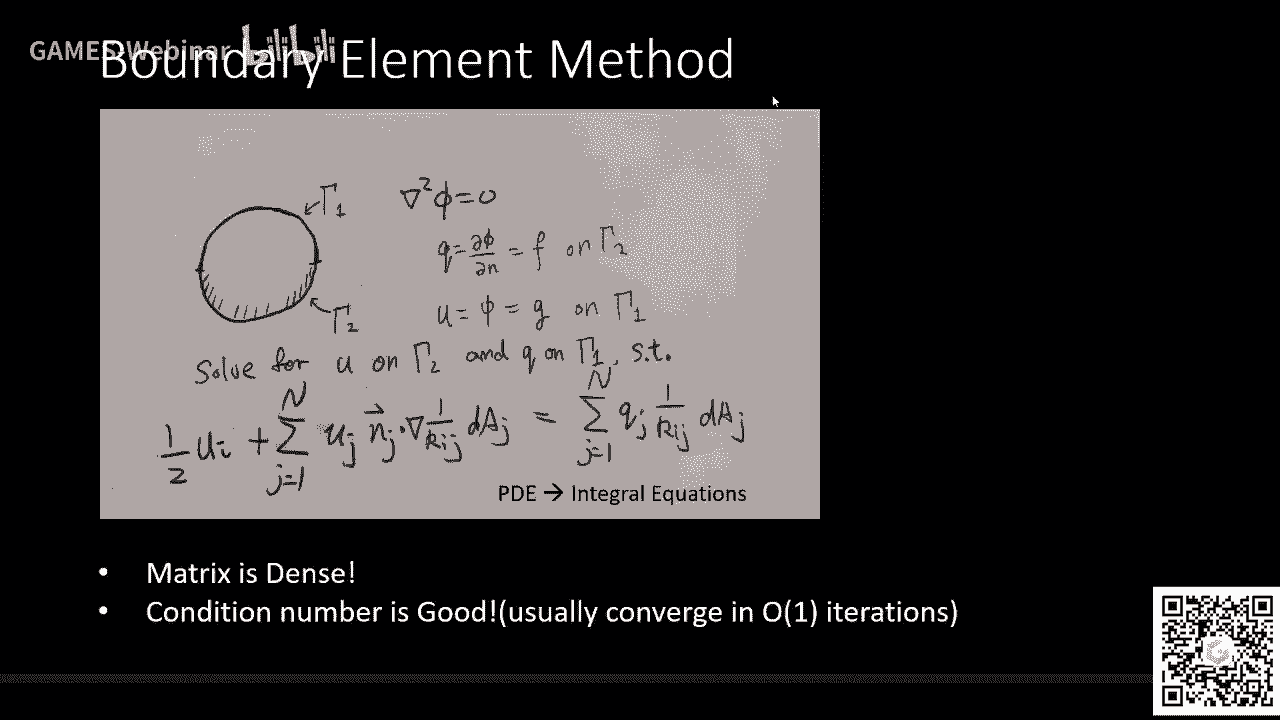 GAMES-Webinar bilibili
Boundary Element Method
Γ1
∇²ϕ=0
q=∂ϕ/∂n = f on Γ2
Γ2
u= ϕ = g on Γ1
Solve for u on Γ2 and q on Γ1, s.t.
1/2 ui + N∑j=1 uj n⃗j·∇ 1/Rij dAj = N∑j=1 qj 1/Rij dAj
PDE → Integral Equations
• Matrix is Dense!
• Condition number is Good!(usually converge in O(1) iterations)